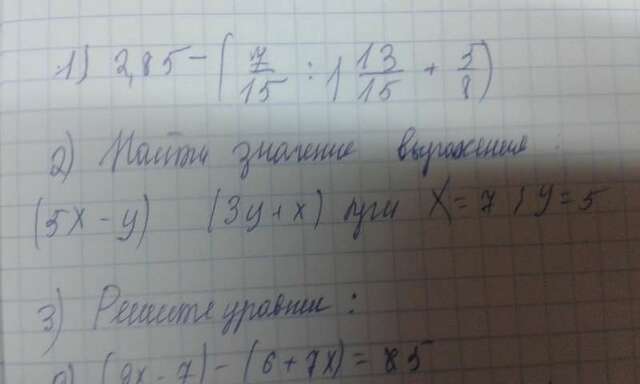 1) 2,85 - ( 7/15 : 1 13/15 + 5/8 )
2) Найти значение выражения :
(5x - y) (3y + x) при x = 7 ; y = 5
3) Решите уравнен :
(9x - 7) - (6 + 7x) = 85